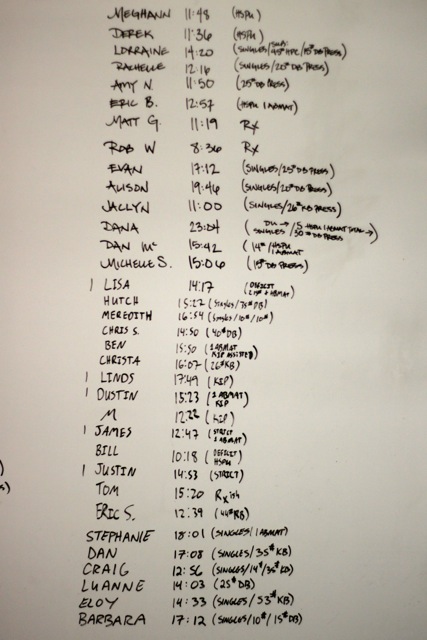 MEGHANN 11:48 (HSPU)
DEREK 11:36 (HSPU)
LORRAINE 14:20 (SINGLES/ 45# HPC/15# DB PRESS)
RACHELLE 12:16 (SINGLES/20# DB PRESS)
AMY N. 11:50 (25# DB PRESS)
ERIC B. 12:57 (HSPU 1 ABMAT)
MATT G. 11:19 Rx
ROB W 8:36 Rx
EVAN 17:12 (SINGLES/25# DB PRESS)
ALISON 19:46 (SINGLES/20# DB PRESS)
JACLYN 11:00 (SINGLES/26# KB PRESS)
DANA 23:04 (DU → SINGLES / 5 HSPU 1 ABMAT TOTAL → 30# DB PRESS)
DAN Mc 15:42 (14#/HSPU 1 ABMAT)
MICHELLE S. 15:06 (15# DB PRESS)
1 LISA 14:17 (DEFICIT ABMAT)
HUTCH 15:22 (SINGLES/35# DB)
MEREDITH 16:54 (SINGLES/10#/10#)
CHRIS S. 14:50 (40# DB)
BEN 15:50 (1 ABMAT KIP ASSISTED)
CHRISTA 16:07 (26# KB)
1 LINDS 17:49 (KIP)
1 DUSTIN 15:23 (1 ABMAT KIP)
M 12:22 (KIP)
1 JAMES 12:47 (STRICT 1 ABMAT)
BILL 10:18 (DEFICIT HSPU)
1 JUSTIN 14:53 (STRICT)
TOM 15:20 Rxish
ERIC S. 12:39 (44# KB)
STEPHANIE 18:01 (SINGLES/1 ABMAT)
DAN 17:08 (SINGLES/35# KB)
CRAIG 12:56 (SINGLES/14#/35# KB)
LUANNE 14:03 (25# DB)
ELOY 14:33 (SINGLES/53# KB)
BARBARA 17:12 (SINGLES/10#/15# DB)